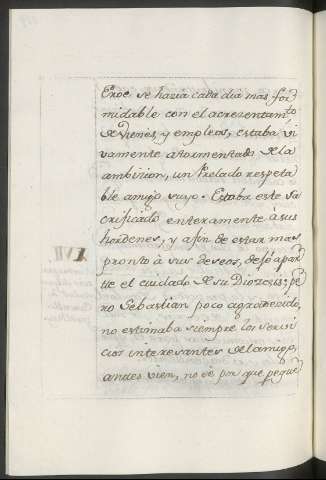 Eroe se hazia cada dia mas for
midable con el acrezentam.to
de vienes, y empleos, estaba vi
vamente atormentado de la
ambision, un Prelado respeta
ble amigo suyo. Estaba este sa
crificado enteramente à sus
hordenes, y afin de estar mas
pronto à sus deseos, dejó apar
te el cuidado de su Diozesis; pe
ro Sebastian poco agradecido,
no estimaba siempre los servi
cios interesantes del amigo,
antes vien, no sé por que peque
XVII.